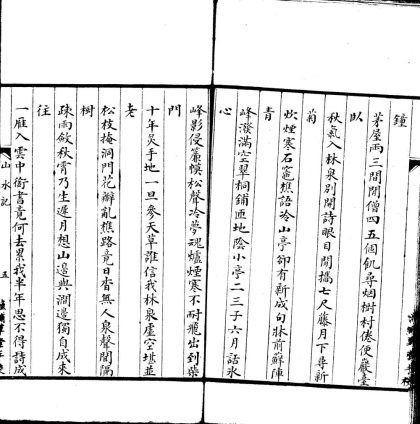 鐘
茅屋兩三間閒僧四五個飢尋烟樹村倦便巖臺
臥
秋氣入林泉別開詩眼目閒攜七尺藤月下尋新
菊
炊煙寒石竈樵語冷山亭卻有新成句牀前蘚陣
青
峰潑滿空翠桐鋪匝地陰小亭二三子六月話冰
心
峰影侵簾幙松聲冷夢魂爐煙寒不耐飛出到柴
門
十年炙手地一旦參天草誰信我林泉虛空堪並
老
松枝掩洞門花瓣亂樵路竟日杳無人泉聲閒隔
樹
疎雨斂秋霄乃生遲月想山邊與澗邊獨自成來
往
一雁入雲中銜書竟何去累我半年思不得詩成
山水記 五